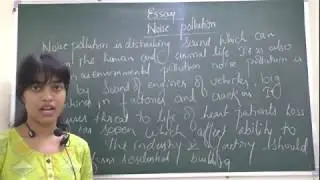 Essay
Noise pollution
Noise pollution is distrubing sound which can
the human and animal life. It is also
as environmental pollution noise pollution is
by sound of engines of vehicles, big
in factories and crackers. It
threat to life of heart patients loss
which affect ability to
The industry & factory should
from residential building